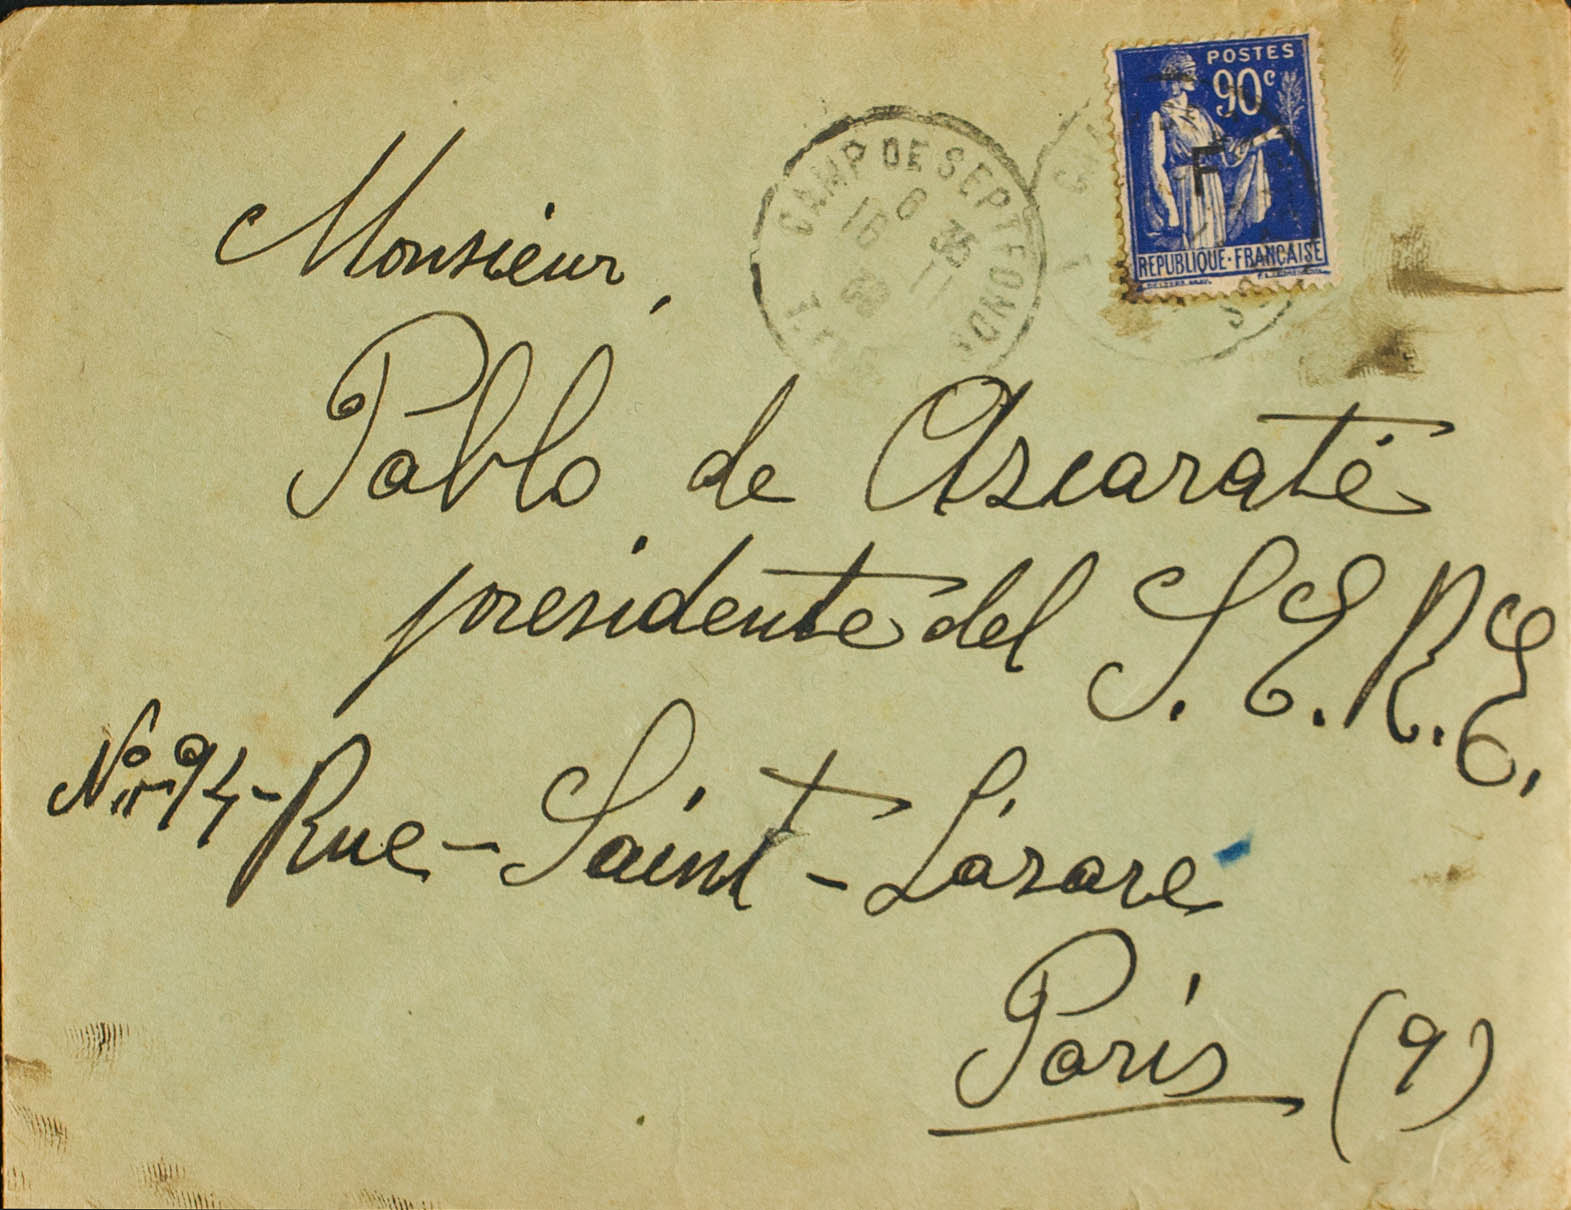 POSTES
90c
F
REPUBLIQUE·FRANÇAISE
CAMP DE SEPTFONDS
6 35
16 11
Monsieur,
Pablo de Ascaraté
presidente del S.E.R.E.
Nº 94-Rue-Saint-Lázare
París (9)